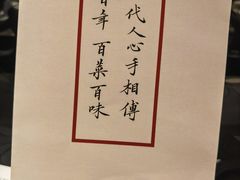 代人心手相傳
百年 百菜百味